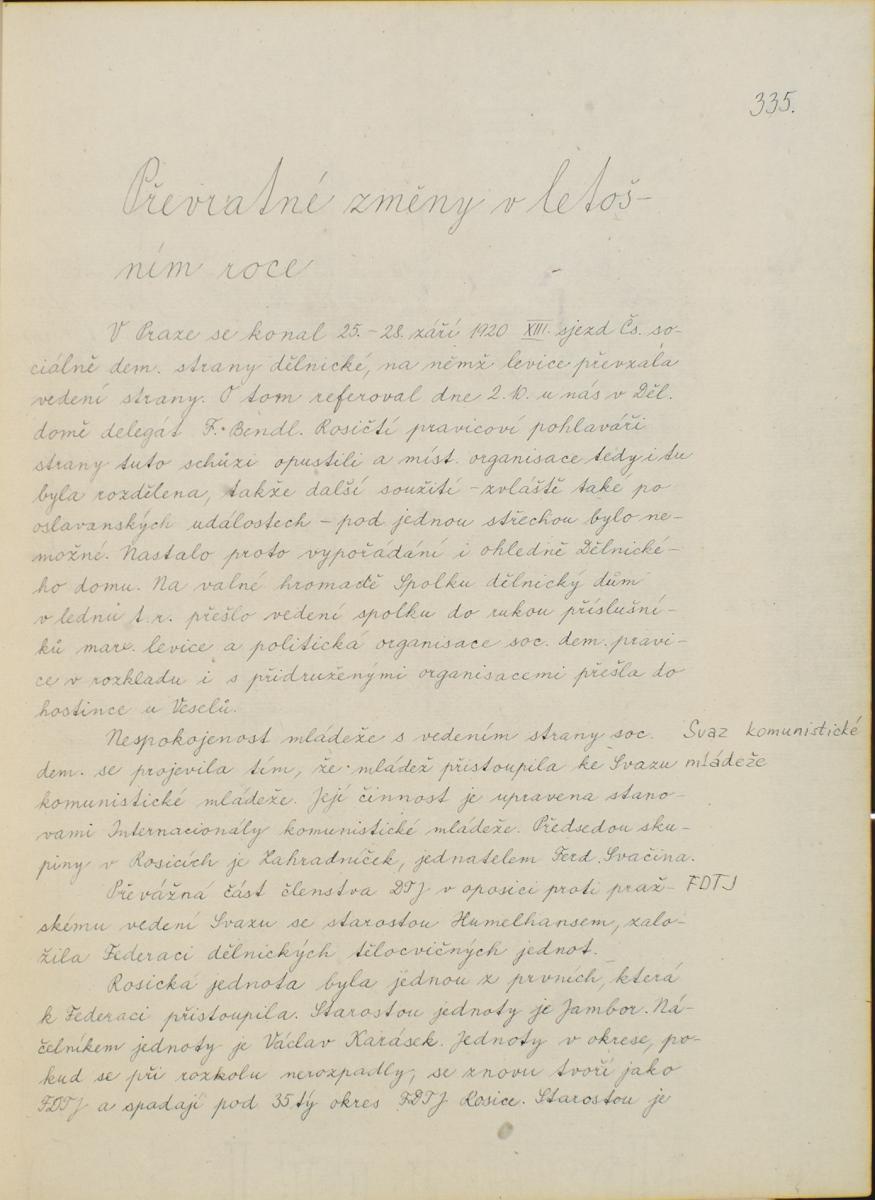 335.
Převratné změny v letoš-
ním roce
V Praze se konal 25.-28. září 1920 XIII. sjezd Čs. so-
ciálně dem. strany dělnické, na němž levice převzala
vedení strany. O tom referoval dne 2.10. u nás v Děl.
domě delegát F. Bendl. Rosičtí pravicoví pohlaváři
strany tuto schůzi opustili a míst. organisace tedy i tu
byla rozdělena, takže další soužití - zvláště take po
oslavanských událostech - pod jednou střechou bylo ne-
možné. Nastalo proto vypořádání i ohledně Dělnické-
ho domu. Na valné hromadě Spolku dělnický dům
v lednu t.r. přešlo vedení spolku do rukou příslušní-
ků marx. levice a politická organisace soc. dem. pravi-
ce v rozkladu i s přidruženými organisacemi přešla do
hostince u Veselů.
Nespokojenost mládeže s vedením strany soc. Svaz komunistické
dem. se projevila tím, že mládež přistoupila ke Svazu mládeže
komunistické mládeže. Její činnost je upravena stano-
vami Internacionály komunistické mládeže. Předsedou sku-
piny v Rosicích je Zahradníček, jednatelem Ferd. Svačina.
Převážná část členstva DTJ v oposici proti praž- FDTJ
skému vedení Svazu se starostou Humelhansem, zalo-
žila Federaci dělnických tělocvičných jednot.
Rosická jednota byla jednou z prvních, která
k Federaci přistoupila. Starostou jednoty je Jambor. Ná-
čelníkem jednoty je Václav Karásek. Jednoty v okrese, po-
kud se při rozkolu nerozpadly, se znovu tvoří jako
FDTJ a spadají pod 35tý okres FDTJ Rosice. Starostou je